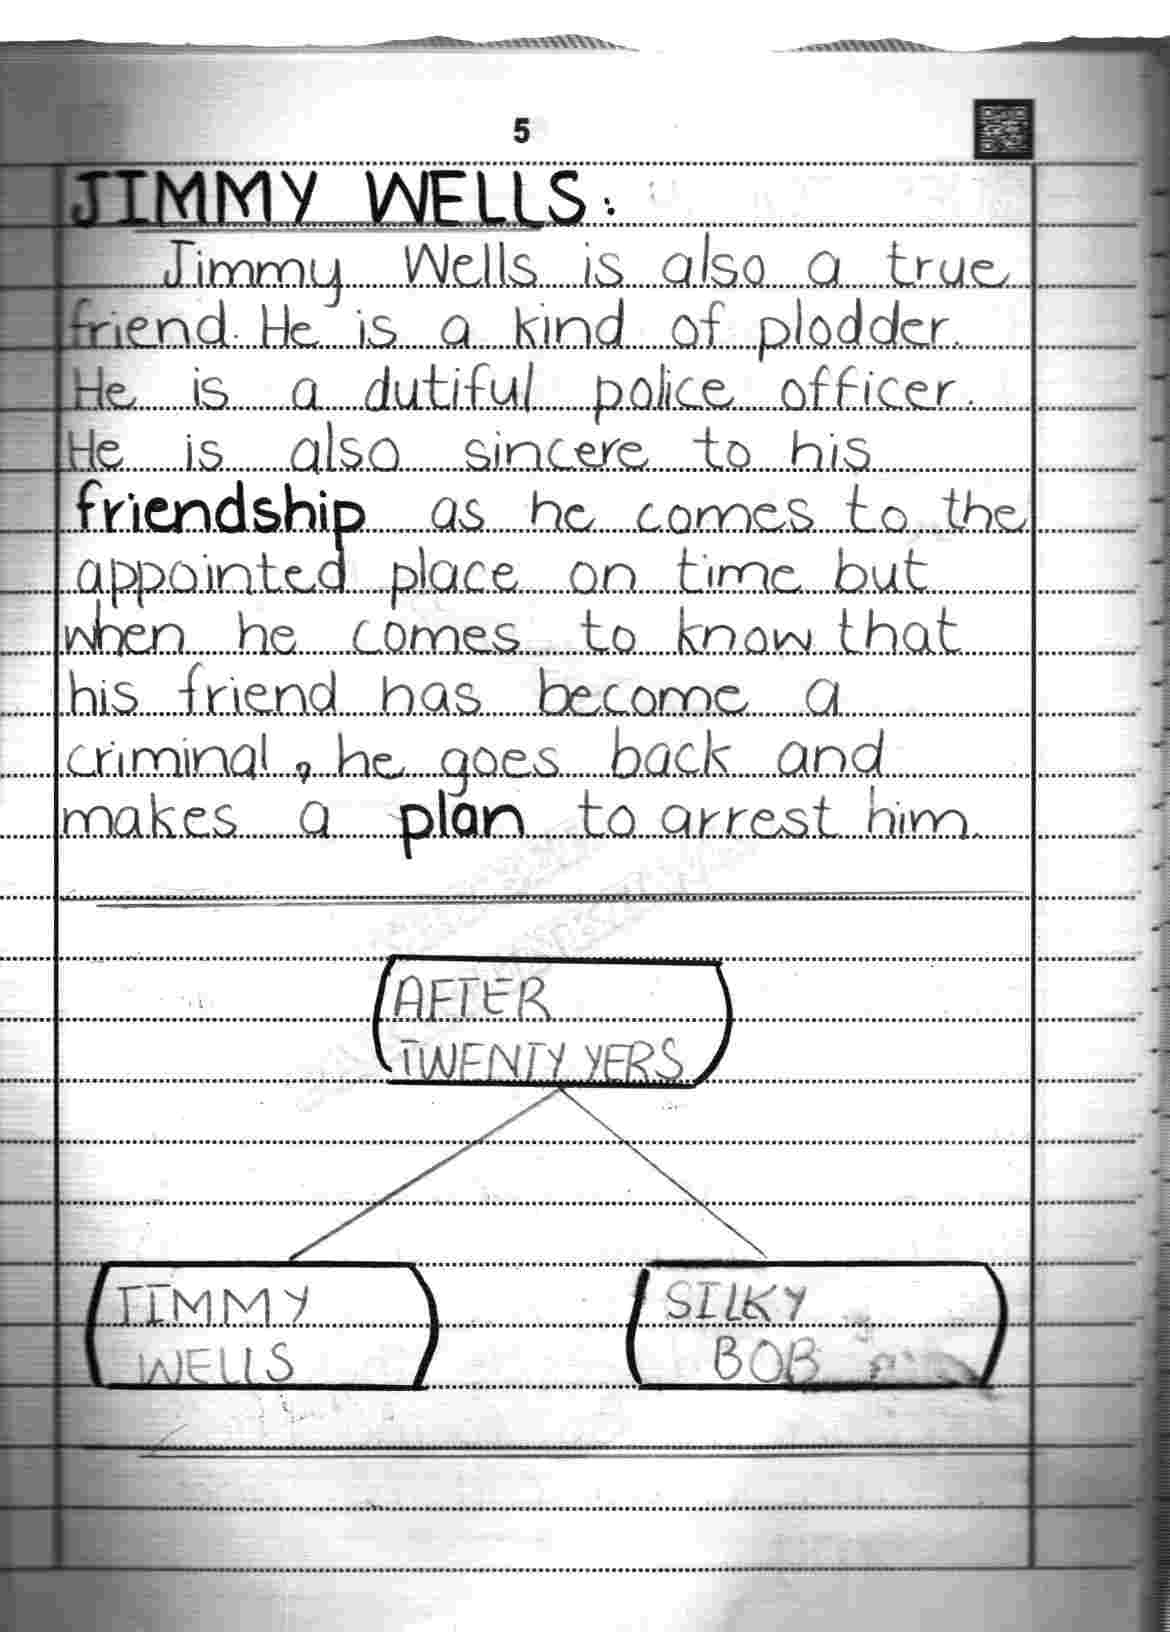 5
JIMMY WELLS:
Jimmy Wells is also a true
friend. He is a kind of plodder.
He is a dutiful police officer.
He is also sincere to his
friendship as he comes to the
appointed place on time but
when he comes to know that
his friend has become a
criminal, he goes back and
makes a plan to arrest him.
AFTER
TWENTY YERS
JIMMY
WELLS
SILKY
BOB